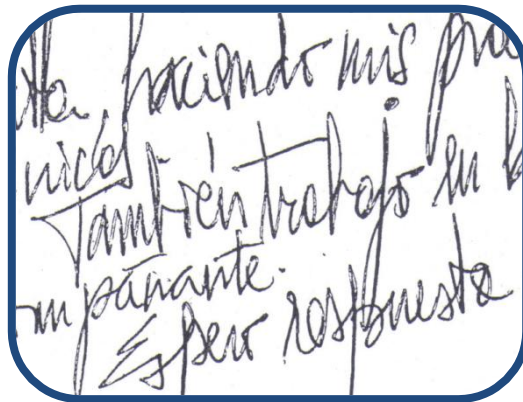 tta, haciendo mis prá
nicas.
También trabajo en l
ompañante.
Espero respuesta